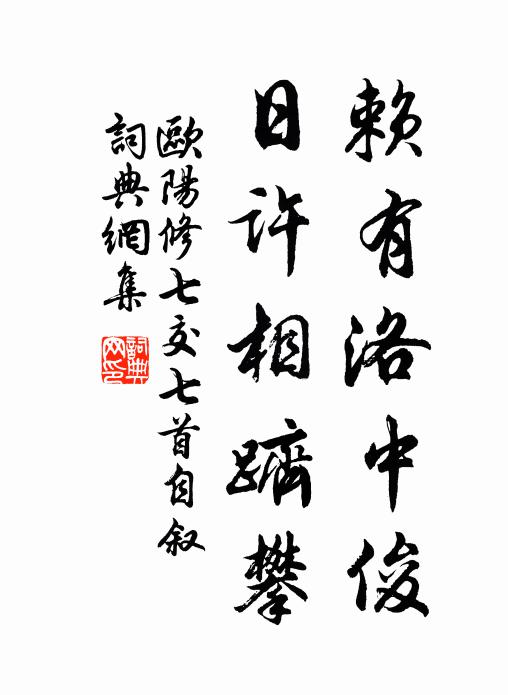 賴有洛中俊
日許相躋攀
歐陽修七交七首自叙
詞典網集
詞典網印